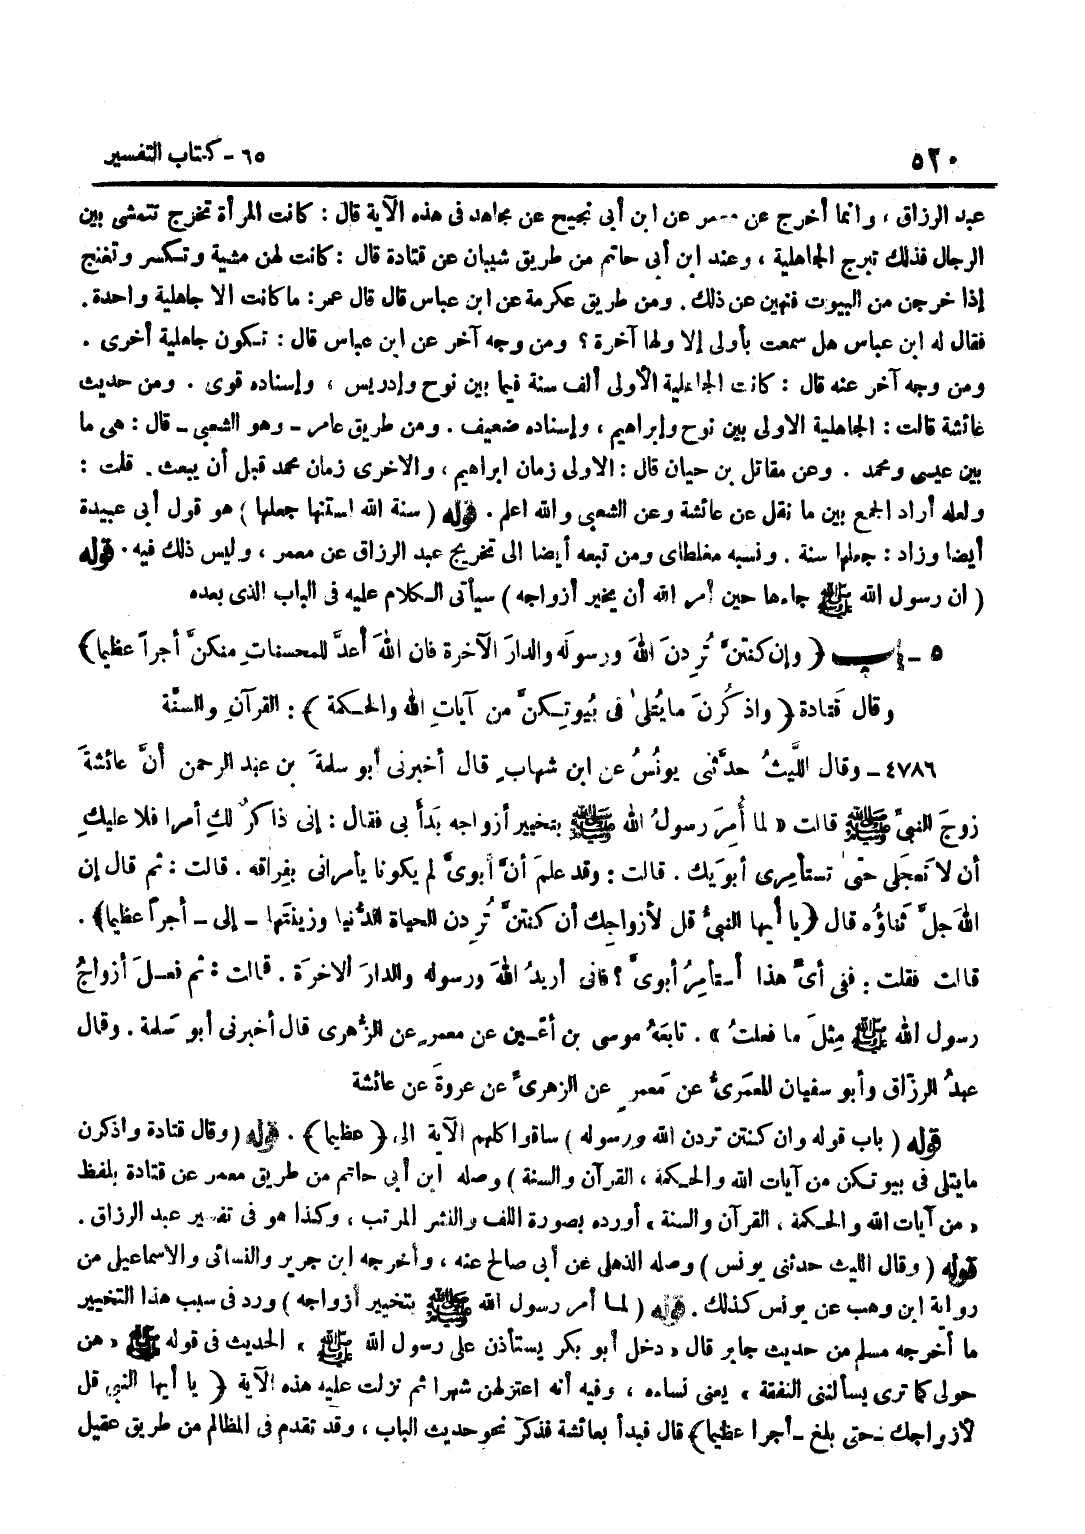 ٥٢٠
٦٥ - كتاب التفسير
عبد الرزاق ، وانما أخرج عن معمر عن ابن أبى نجيح عن مجاهد فى هذه الآية قال : كانت المرأة تخرج تتمشى بين
الرجال فذلك تبرج الجاهلية ، وعند ابن أبى حاتم من طريق شيبان عن قتادة قال : كانت لهن مشية وتكسر وتغنج
إذا خرجن من البيوت فنهين عن ذلك . ومن طريق عكرمة عن ابن عباس قال قال عمر : ما كانت الا جاهلية واحدة .
فقال له ابن عباس هل سمعت بأولى إلا ولها آخرة ؟ ومن وجه آخر عن ابن عباس قال : تكون جاهلية أخرى .
ومن وجه آخر عنه قال : كانت الجاهلية الأولى ألف سنة فيما بين نوح وإدريس ، وإسناده قوى . ومن حديث
عائشة قالت : الجاهلية الاولى بين نوح وإبراهيم ، وإسناده ضعيف . ومن طريق عامر - وهو الشعبي - قال : هى ما
بين عيسى ومحمد . وعن مقاتل بن حيان قال : الاولى زمان ابراهيم ، والاخرى زمان محمد قبل أن يبعث . قلت :
ولعله أراد الجمع بين ما نقل عن عائشة وعن الشعبى والله اعلم . قوله ( سنة الله استنها جعلها ) هو قول أبى عبيدة
أيضا وزاد : جعلها سنة . ونسبه مغلطاى ومن تبعه أيضا الى تخريج عبد الرزاق عن معمر ، وليس ذلك فيه . قوله
( أن رسول الله ﷺ جاءها حين أمر الله أن يخير أزواجه ) سيأتى الكلام عليه فى الباب الذى بعده
٥ - باب ﴿ وإن كنتنَّ تُرِدنَ اللهَ ورسولَه والدارَ الآخرة فان اللهَ أعدَّ للمحسناتِ منكنَّ أجراً عظيما ﴾
وقال قَتادة ﴿ واذكُرنَ ما يُتلىٰ فى بُيوتِكنَّ من آياتِ اللهِ والحكمة ﴾ : القرآنِ والسنَّة
٤٧٨٦ - وقال الليَّثُ حدَّثنى يونُسُ عن ابن شهابٍ قال أخبرنى أبو سلمةَ بن عبد الرحمن أنَّ عائشةَ
زوجَ النبىِّ ﷺ قالت « لما أُمِرَ رسولُ الله ﷺ بتخيير أزواجه بَدأَ بى فقال : إنى ذاكرٌ لكِ أمرا فلا عليكِ
أن لا تَعجَلى حتىٰ تستأمِرى أبوَيك . قالت : وقد علمَ أنَّ أبوىَّ لم يكونا يأمرانى بفِراقه . قالت : ثم قال إن
اللهَ جلَّ ثَناؤُه قال ﴿ يا أيها النبىُّ قل لأزواجِك أن كنتنَّ تُردن الحياة الدُّنيا وزينتَها - إلى - أجراً عظيما ﴾ .
قالت فقلت : ففى أىِّ هذا أستأمِرُ أبوىَّ ؟ فانى أريدُ اللهَ ورسوله والدارَ الاخرَة . قالت : ثم فعلَ أزواجُ
رسول الله ﷺ مِثلَ ما فعلتُ » . تابعَهُ موسى بن أعْين عن معمرٍ عن الزُّهرى قال أخبرنى أبو سَلمة . وقال
عبدُ الرزّاق وأبو سفيان المعمَرىُّ عن مَعمرٍ عن الزهرىِّ عن عروةَ عن عائشة
قوله ( باب قوله وان كنتن تردن الله ورسوله ) ساقوا كلهم الآية الى ﴿ عظيما ﴾ . قوله ( وقال قتادة واذكرن
ما يتلى فى بيوتكن من آيات الله والحكمة ، القرآن والسنة ) وصله ابن أبى حاتم من طريق معمر عن قتادة بلفظ
« من آيات الله والحكمة ، القرآن والسنة » أورده بصورة اللف والنشر المرتب ، وكذا هو فى تفسير عبد الرزاق .
قوله ( وقال الليث حدثنى يونس ) وصله الذهلى عن أبى صالح عنه ، وأخرجه ابن جرير والنسائى والاسماعيلى من
رواية ابن وهب عن يونس كذلك . قوله ( لما أمر رسول الله ﷺ بتخيير أزواجه ) ورد فى سبب هذا التخيير
ما أخرجه مسلم من حديث جابر قال « دخل أبو بكر يستأذن على رسول الله ﷺ » الحديث فى قوله ﷺ « هن
حولى كما ترى يسألننى النفقة » يعنى نساءه ، وفيه أنه اعتزلهن شهرا ثم نزلت عليه هذه الآية ﴿ يا أيها النبى قل
لأزواجك - حتى بلغ - أجرا عظيما ﴾ قال فبدأ بعائشة فذكر نحو حديث الباب ، وقد تقدم فى المظالم من طريق عقيل